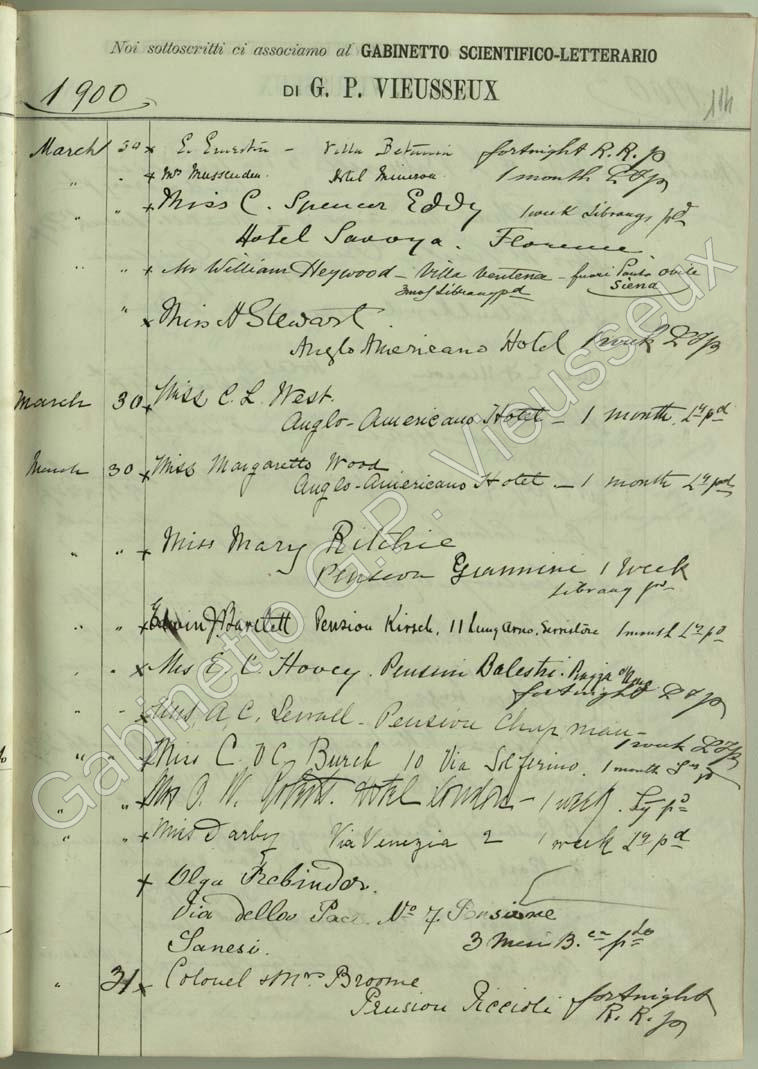 Noi sottoscritti ci associamo al GABINETTO SCIENTIFICO-LETTERARIO
1900 DI G. P. VIEUSSEUX 114
March 30 x E. - Villa fortnight R. R. p
" " x Mrs Hotel Minerva 1 month
" " x Miss C. Spencer Eddy 1 week Library pd
Hotel Savoya. Florence
" " x Mr William Heywood - Villa - fuori Porta Ovile
3 mos Library pd Siena
" x Miss H Stewart
Anglo Americano Hotel 1 week
March 30 x Miss C. L. West.
Anglo-Americano Hotel - 1 month. Ly pd
March 30 x Miss Margaretto Wood
Anglo-Americano Hotel - 1 month Ly pd
" " x Miss Mary Ritchie
Pension Giannini 1 week
Library pd
" " x Edwin J. Bartlett Pension Kirsch, 11 Lung Arno, Serristori 1 month Ly pd
" " x Mrs E. C. Hovey. Pension Balestri. Piazza
fortnight
" " x Miss A. C. Pension Chapman -
1 week
" " x Miss C. DC. Burch 10 Via Solferino. 1 month
" " x O. W. Hotel London - 1 week. Ly pd
" " x Miss Darby Via Venezia 2 1 week Ly pd
x Olga
Via della Pace No 7. Pensione
Sanesi. 3 Mesi
" 31 x Colonel & Mrs Broome
Pension Piccioli fortnight
R. R. p
Gabinetto G.P. Vieusseux